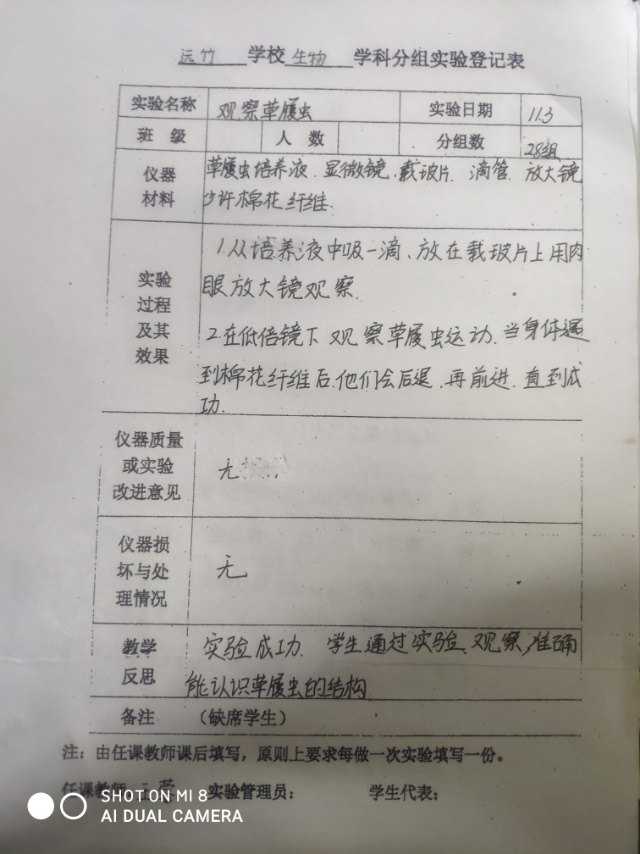 远竹 学校 生物 学科分组实验登记表
实验名称 观察草履虫 实验日期 11.3
班 级 人 数 分组数 28组
仪器材料 草履虫培养液、显微镜、载玻片、滴管、放大镜
少许棉花纤维.
实验过程及其效果
1.从培养液中吸一滴、放在载玻片上用肉
眼放大镜观察.
2.在低倍镜下观察草履虫运动.当身体遇
到棉花纤维后.他们会后退、再前进.直到成
功.
仪器质量或实验改进意见 无
仪器损坏与处理情况 无
教学反思 实验成功. 学生通过实验、观察,准确
能认识草履虫的结构.
备注 (缺席学生)
注：由任课教师课后填写，原则上要求每做一次实验填写一份。
任课教师: 实验管理员： 学生代表：
SHOT ON MI 8
AI DUAL CAMERA